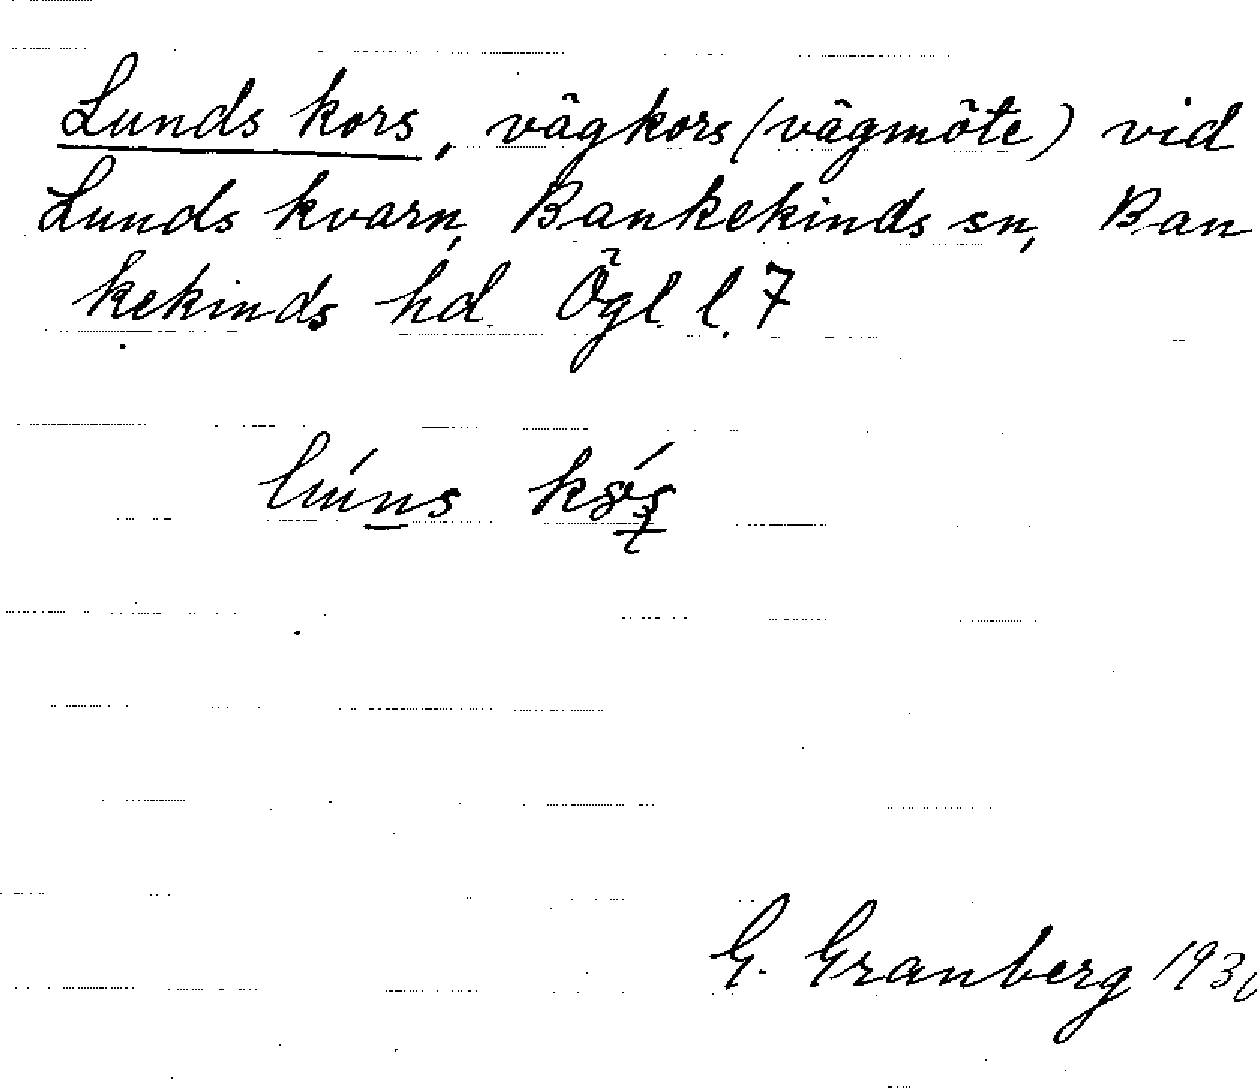 Lunds kors, vägkors (vägmöte) vid
Lunds kvarn, Bankekinds sn, Ban
kekinds hd Ögl l. 7
G. Granberg 193